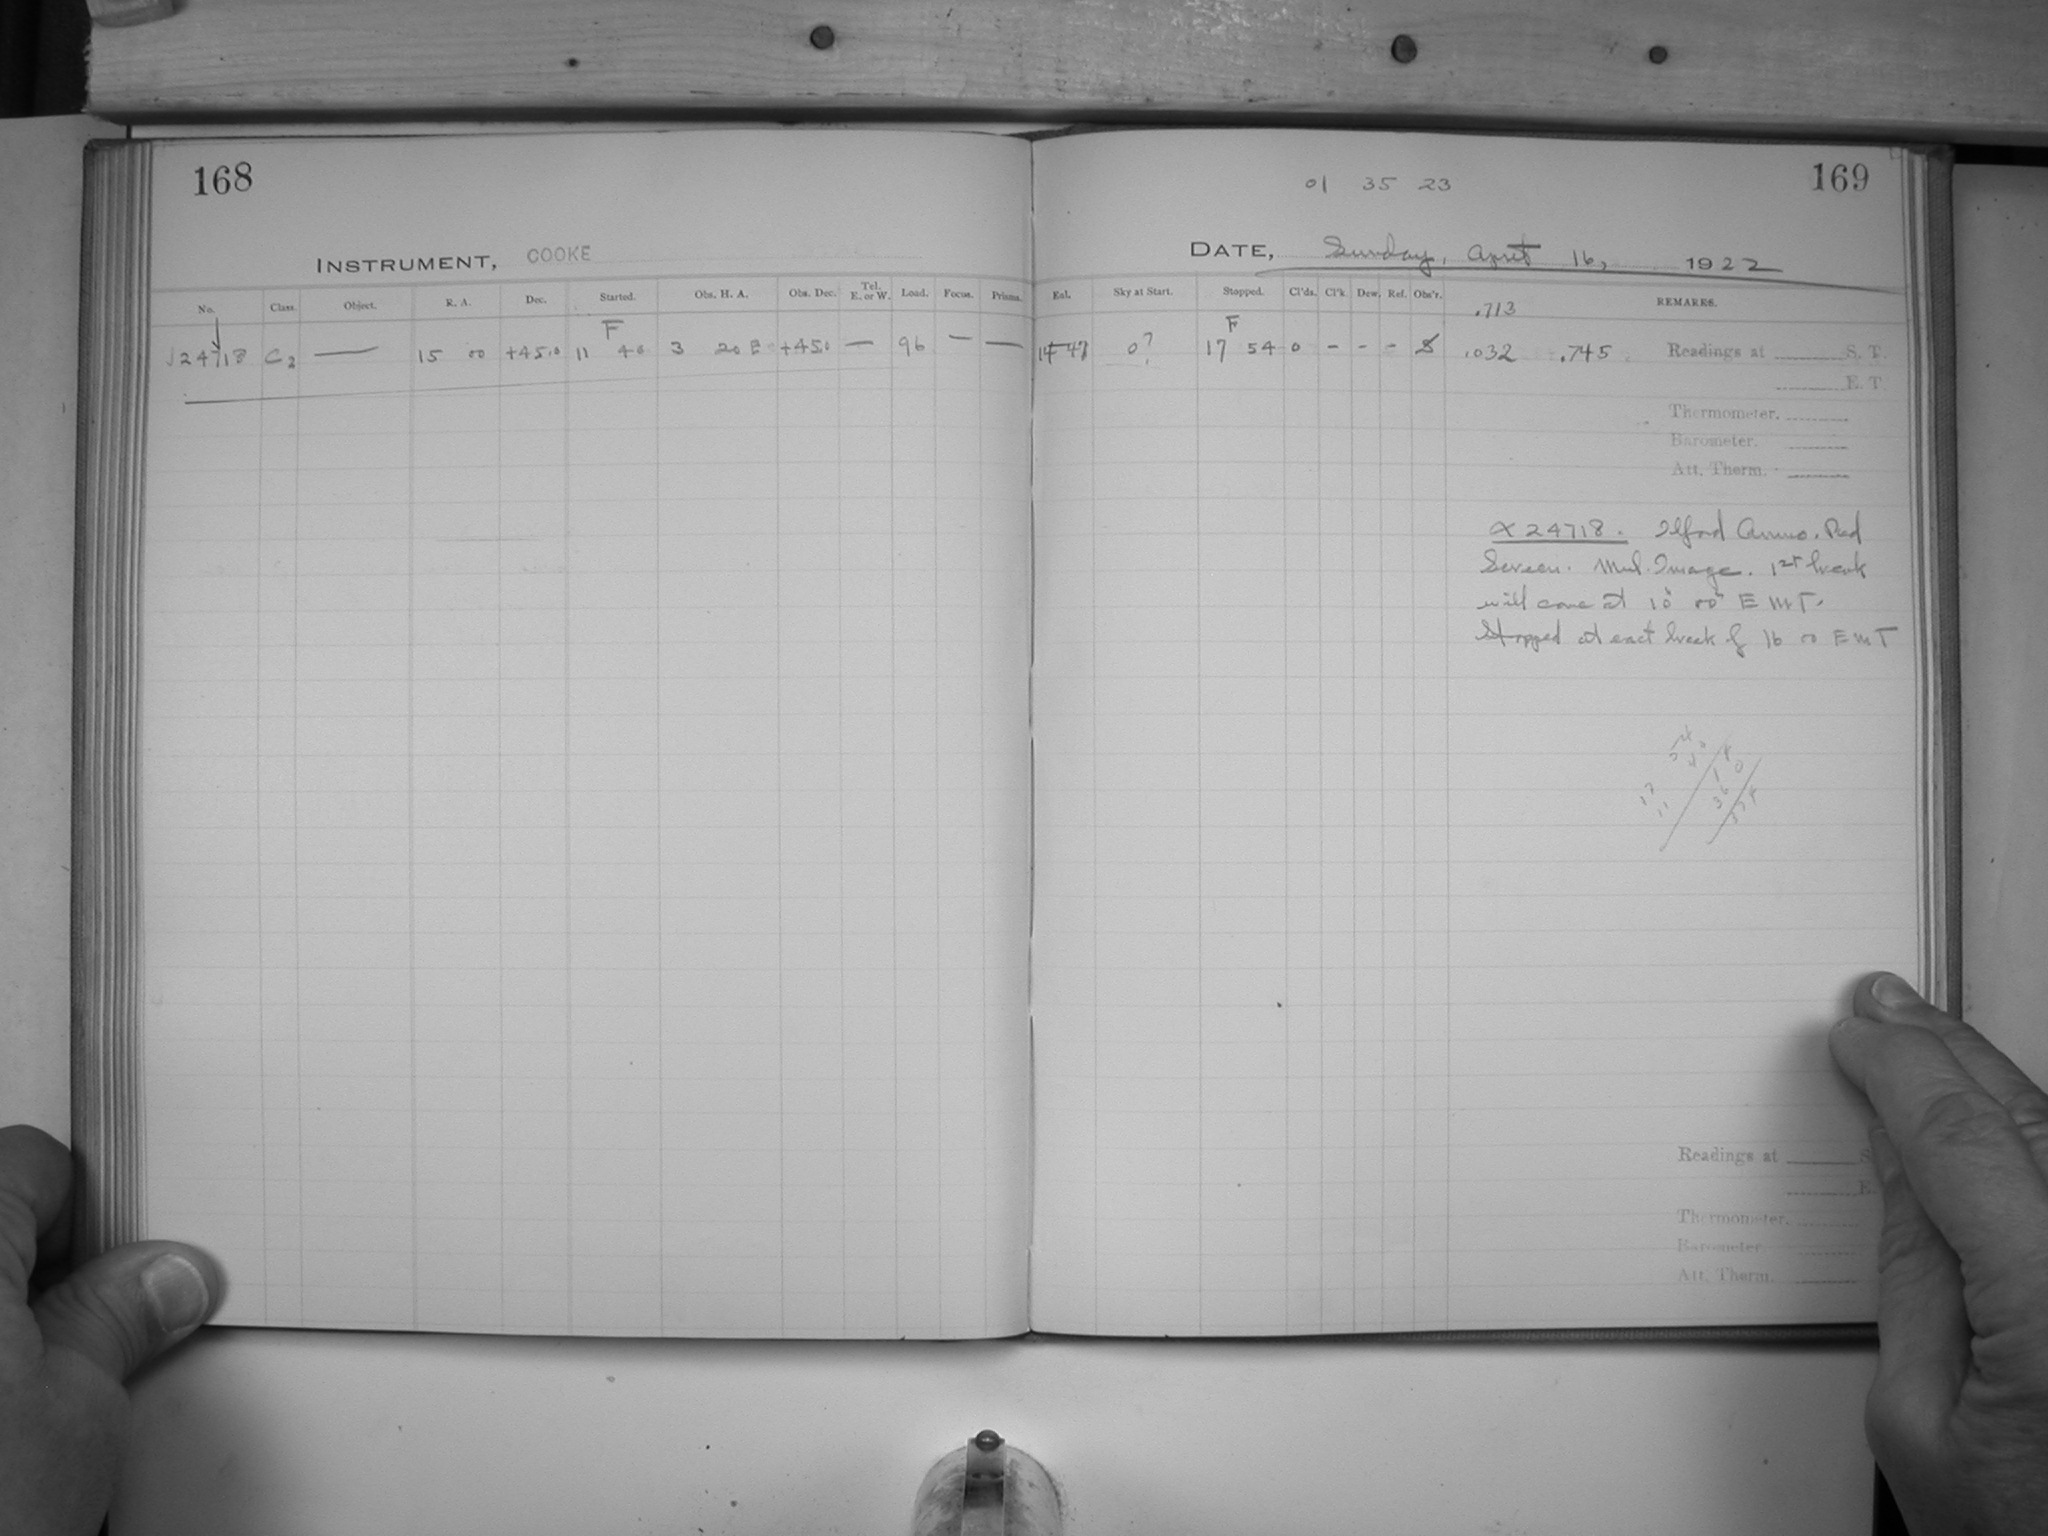 168
INSTRUMENT, COOKE
No. Class. Object. R. A. Dec. Started. Obs. H. A. Obs. Dec. Tel. E. or W. Load. Focus. Prisms.
F
24718 C2 — 15 00 +45.0 11 40 3 20 E +45.0 — 96 — —
01 35 23
169
DATE, Sunday, April 16, 1922
Eal. Sky at Start. Stopped. Cl'ds. Cl'k. Dew. Ref. Obs'r. REMARKS.
.713
F
47 0? 17 54 0 - - - S .032 .745 Readings at S. T.
E. T.
Thermometer.
Barometer.
Att. Therm.
24718. Ilford Red
Screen. Mul. Image. 1st break
will come at 10 00 E M T.
Stopped at exact break of 16 00 E M T
17 54
11 40
Readings at S
E.
Thermometer.
Barometer.
Att. Therm.